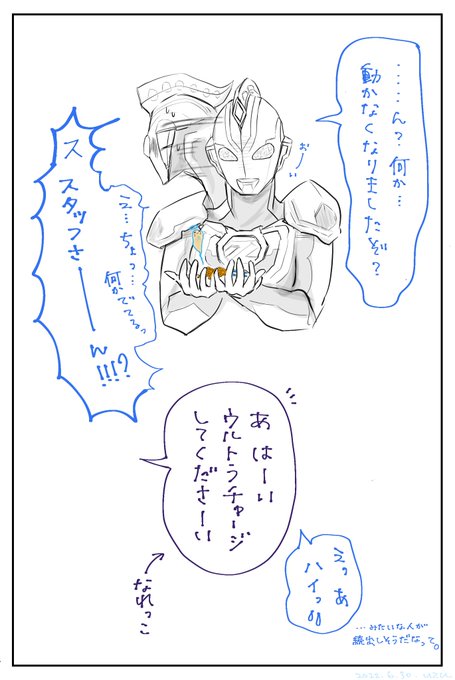 ‥‥ん？何か…
動かなくなりましたぞ？
おーい
え…ちょっ…
何かでてるっ
ス スタッフさ
ーーん!!!?
あ はーい
ウルトラチャージ
してくださーい
なれっこ
えっ あ
ハイっ!!
…みたいな人が
続出しそうだなって。